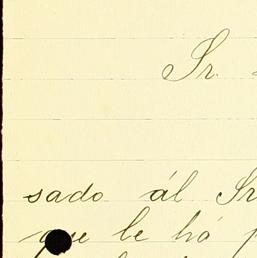 Sr.
sado ál Sr
que le há